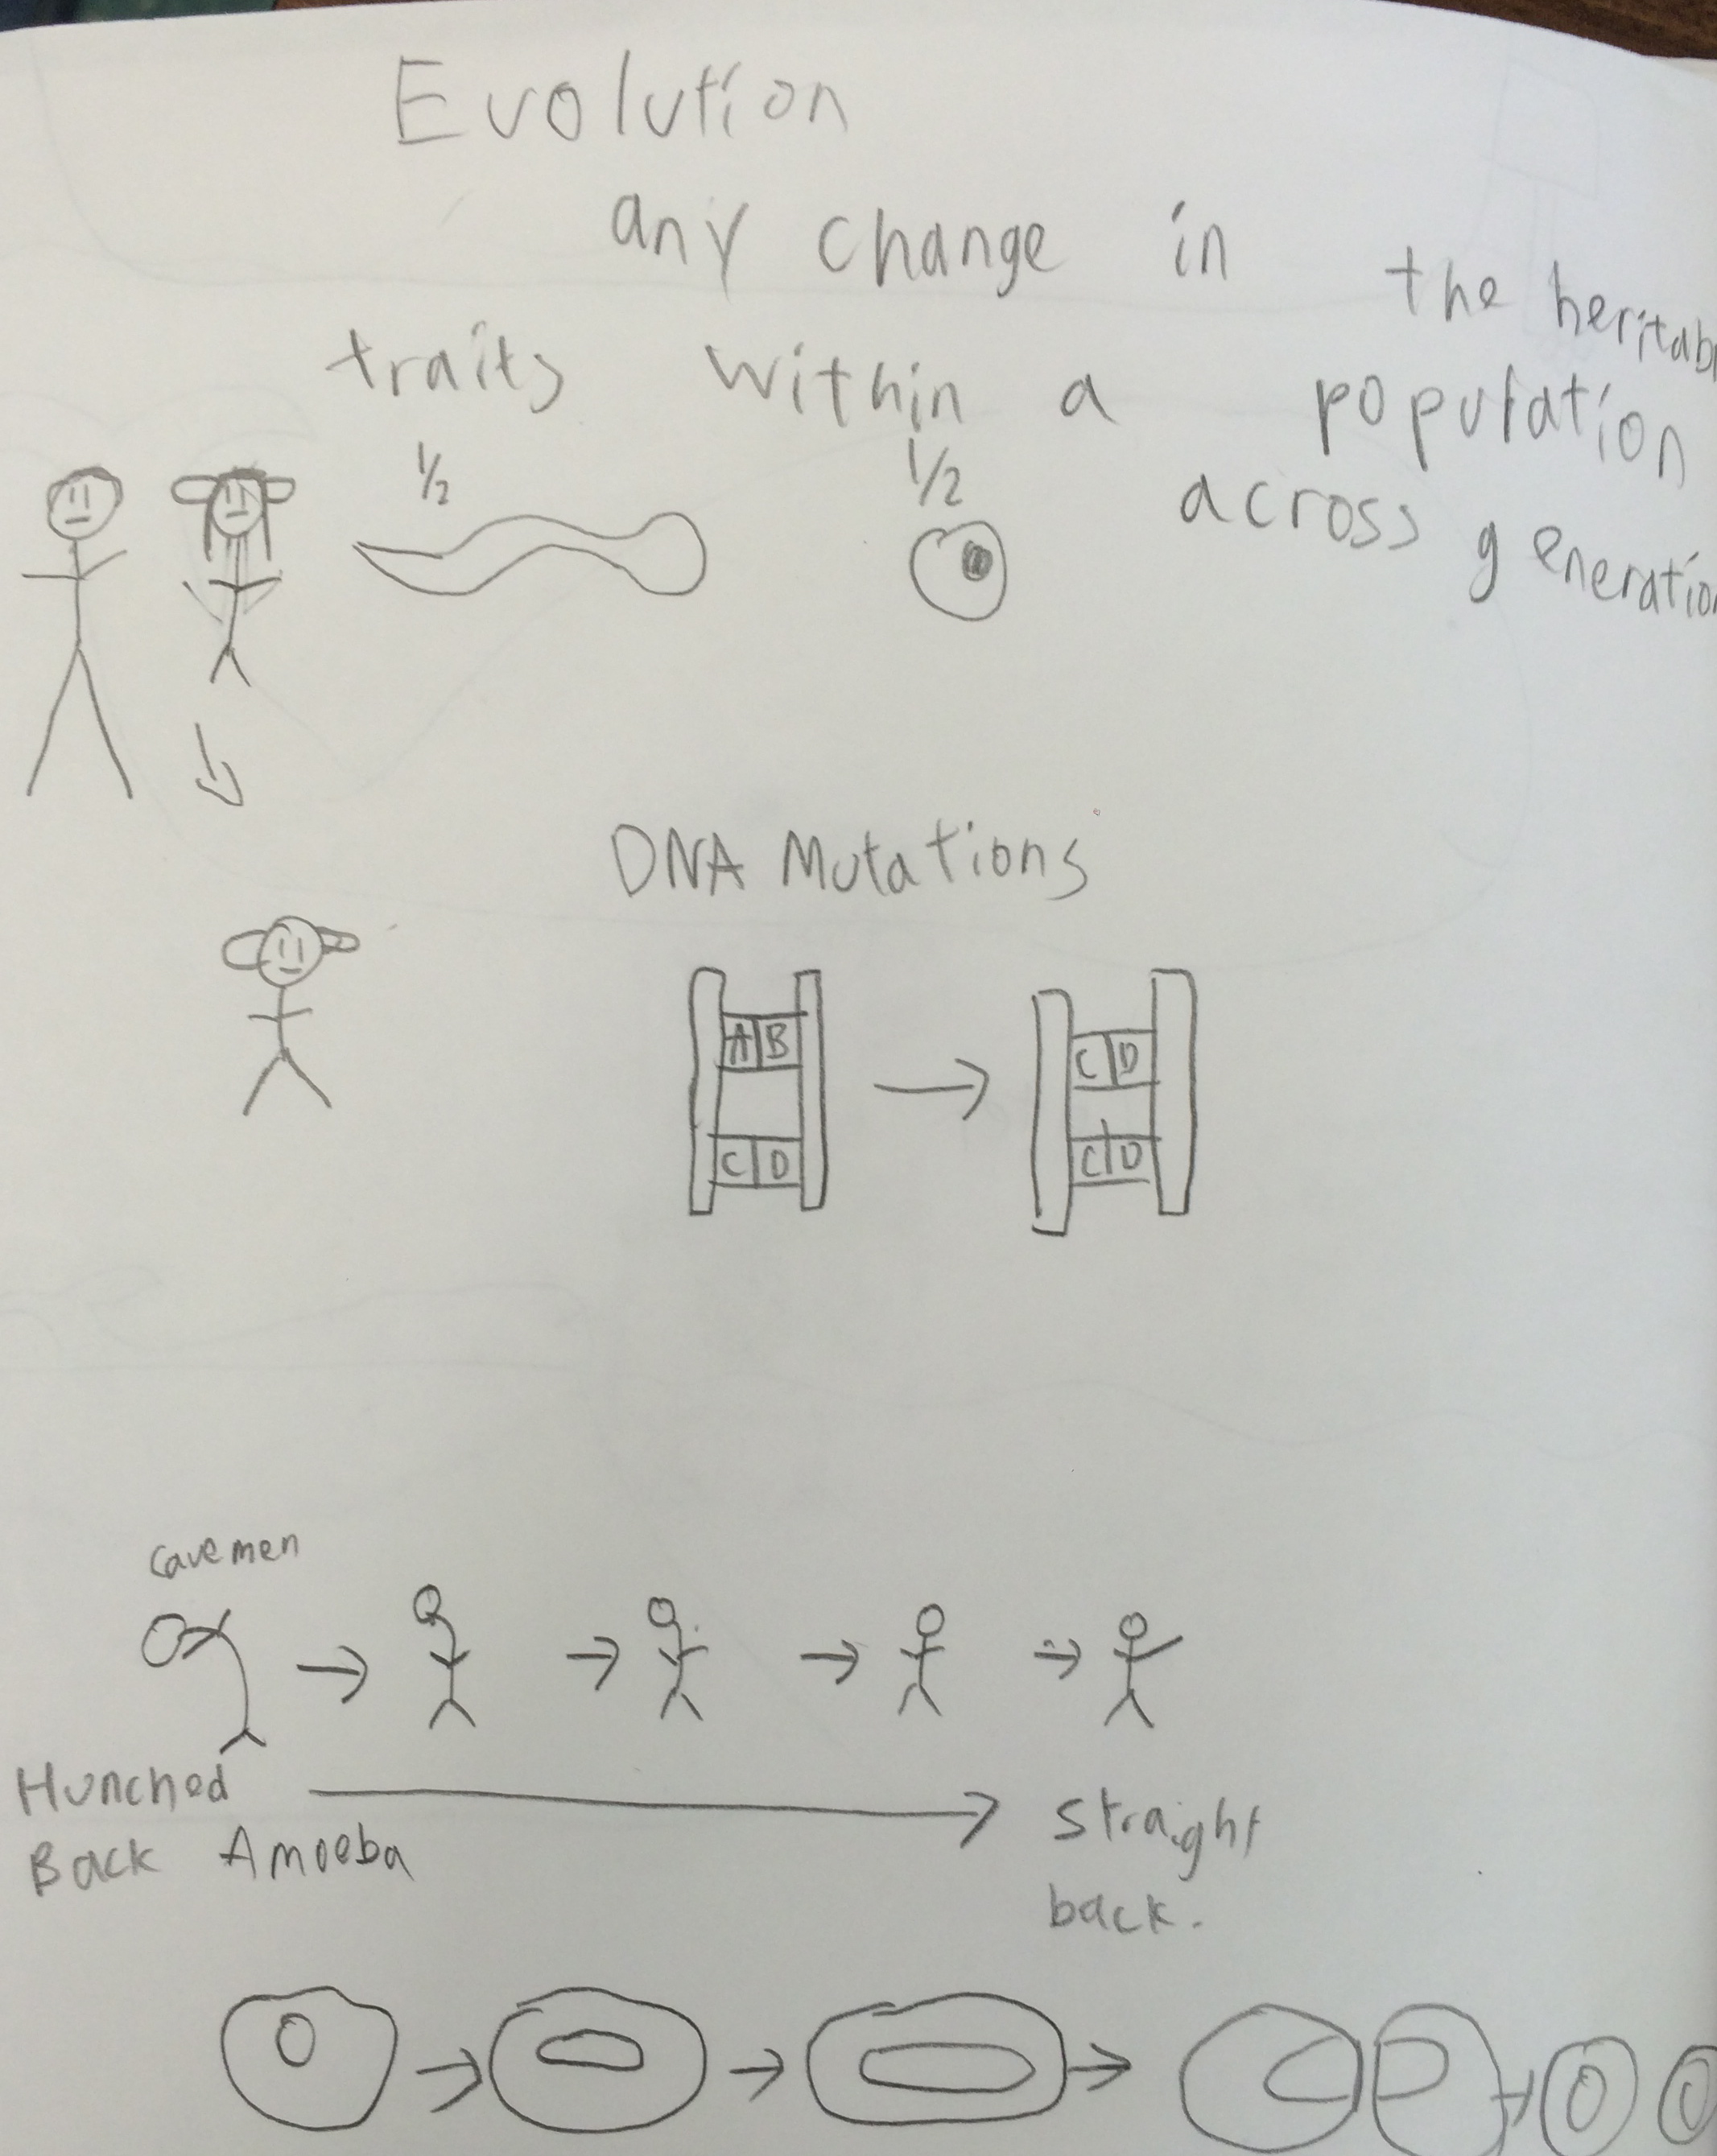 Evolution
any change in the heritab
traits within a population
across generation
1/2 1/2
DNA Mutations
A B
C D
C D
C D
cavemen
Hunched
Back
straight
back.
Amoeba